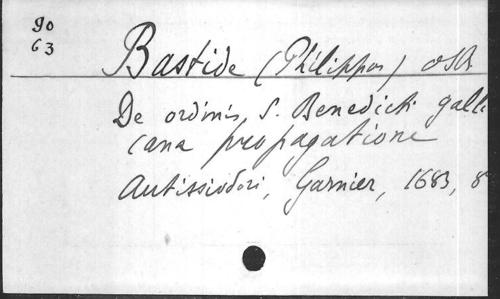 90
63
Bastide (Philippus) OSB
De ordinis S. Benedicti galli
cana propagatione
Autissiodori, Garnier, 1683, 8